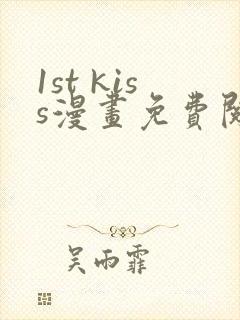 1st kis
s漫畫免費
吳雨霏